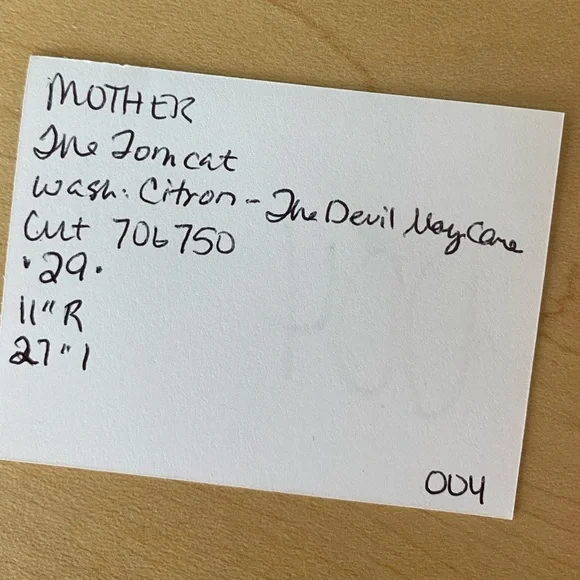 MOTHER
The Tomcat
Wash: Citron - The Devil May Care
Cut 706750
·29·
11" R
27" I
004